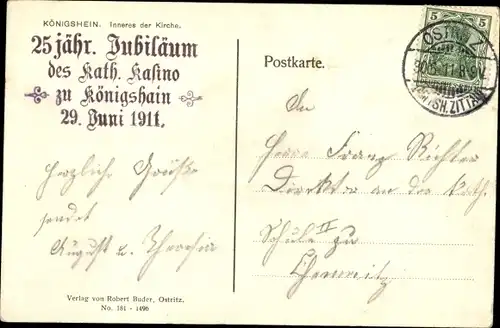 KÖNIGSHEIN. Inneres der Kirche.
25 jähr. Jubiläum
des Kath. Kasino
zu Königshain
29. Juni 1911.
Herzliche Grüße
sendet
August u. Theresia
Verlag von Robert Buder, Ostritz.
No. 181 - 1496
Postkarte.
5 5
OSTRITZ
An
Herrn Franz Richter
Direktor an der Kath.
Schule II zu
Chemnitz